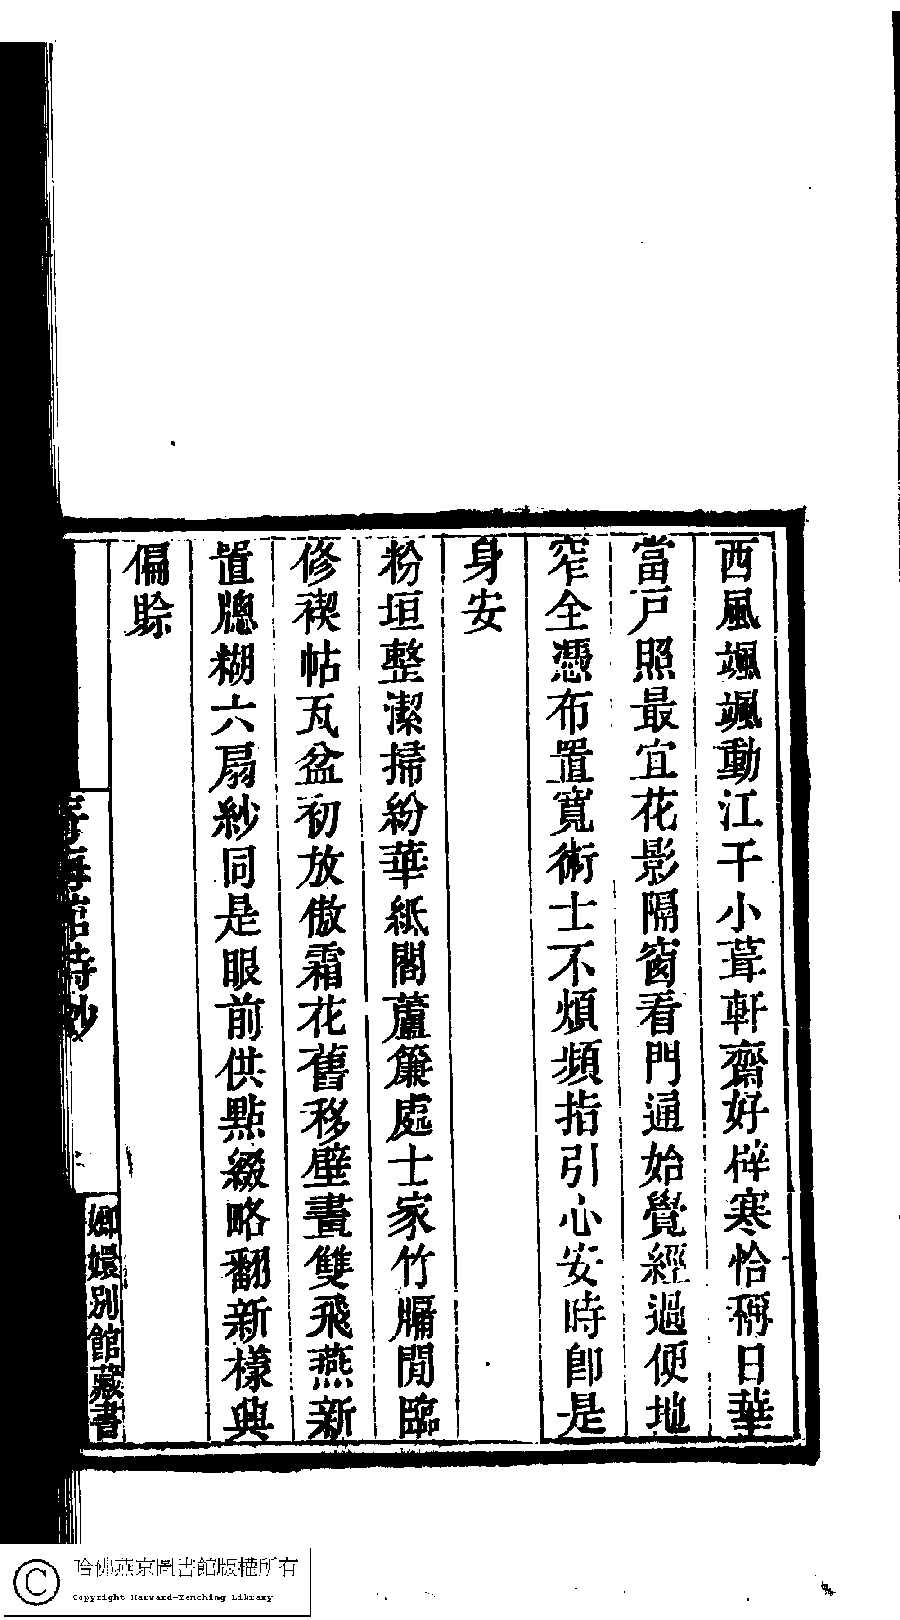 西風颯颯動江干小葺軒齋好辟寒恰稱日華
當戸照最宜花影隔窗看門通始覺經過便地
窄全憑布置寬術士不煩頻指引心安時卽是
身安
粉垣整潔掃紛華紙閣蘆簾處士家竹牖閒臨
修禊帖瓦盆初放傲霜花舊移壁畫雙飛燕新
置牕糊六扇紗同是眼前供點綴略翻新樣興
偏賒
海館詩鈔
嫏嬛別館藏書
哈佛燕京圖書館版權所有
Copyright Harvard-Yenching Library